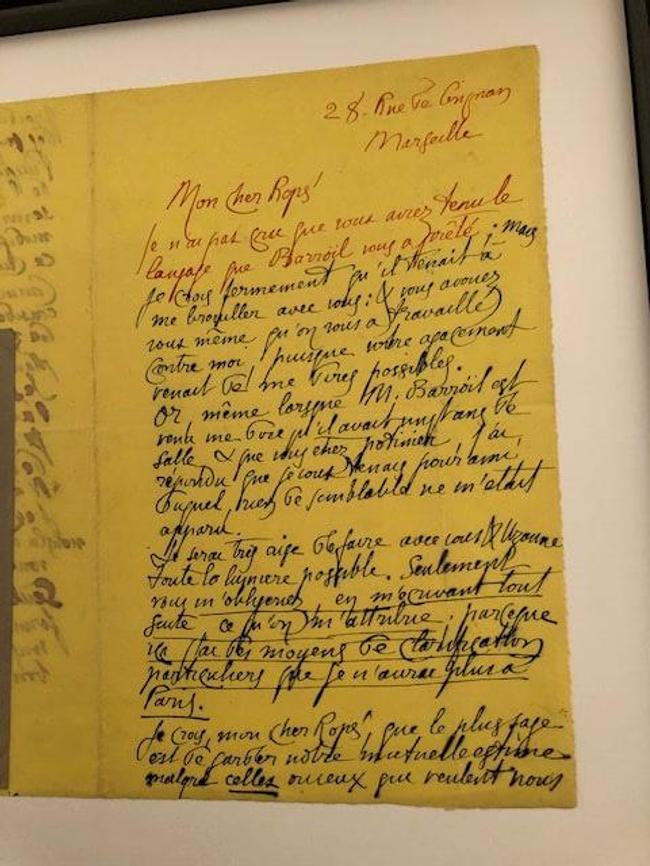 28. Rue de Grignan
Marseille
Mon cher Rops!
Je n'ai pas cru que vous aviez tenu le
langage que Barroïl vous a prêté ; mais
je crois fermement qu'il tenait à
me brouiller avec vous : & vous avouez
vous même qu'on vous a travaillé
contre moi, puisque votre agacement
venait de me dires possibles.
Or même lorsque M. Barroïl est
venu me dire qu'il avait un de
salle & que vous étiez j'ai
répondu que je vous tenais pour ami,
duquel rien de semblable ne m'était
apparu.
Je serai très aise de faire avec vous & Uzanne
toute la lumière possible. Seulement
vous m'obligeriez en m'écrivant tout
suite ce qu'on m'attribue, parceque
ici j'ai des moyens de clarification
particuliers que je n'aurai plus à
Paris.
Je crois, mon cher Rops! que le plus sage
est de garder notre mutuelle estime
malgré celles ou ceux qui veulent nous